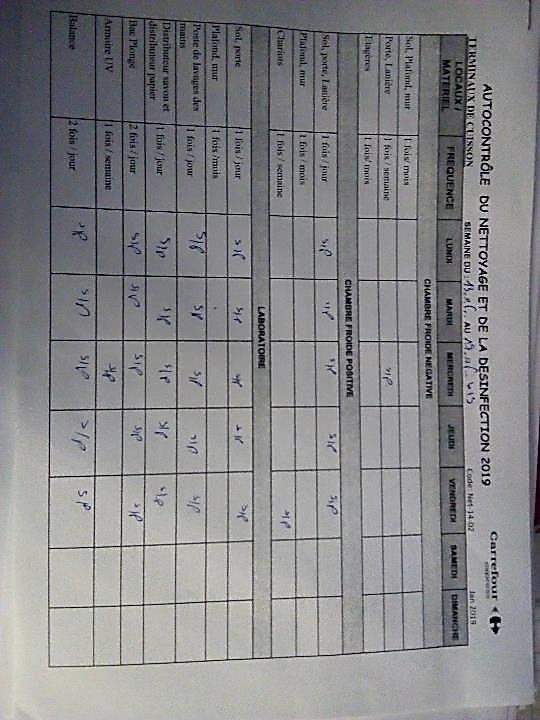 AUTOCONTRÔLE DU NETTOYAGE ET DE LA DESINFECTION 2019
Carrefour
express
TERMINAUX DE CUISSON SEMAINE DU : AU Code: Net-14-02 Jan 2019
LOCAUX / MATERIEL FREQUENCE LUNDI MARDI MERCREDI JEUDI VENDREDI SAMEDI DIMANCHE
CHAMBRE FROIDE NEGATIVE
Sol, Plafond, mur 1 fois/ mois
Porte, Lanière 1 fois / semaine S/P
Etagères 1 fois/ mois
CHAMBRE FROIDE POSITIVE
Sol, porte, Lanière 1 fois / jour S/P S/P S/P S/P S/P
Plafond, mur 1 fois / mois
Chariots 1 fois / semaine S/P
LABORATOIRE
Sol, porte 1 fois / jour S/P S/P S/P S/P S/P
Plafond, mur 1 fois /mois
Poste de lavages des mains 1 fois / jour S/P S/P S/P S/P S/P
Distributeur savon et distributeur papier 1 fois / jour S/P S/P S/P S/P S/P
Bac Plonge 2 fois / jour S/P S/P S/P S/P S/P
Armoire UV 1 fois / semaine S/P
Balance 2 fois / jour S/P S/P S/P S/P S/P